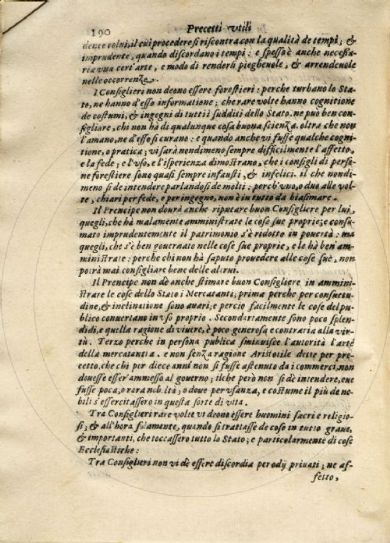 190 Precetti vtili
dente colui, il cui procedere si riscontra con la qualità de tempi; &
imprudente, quando discordano i tempi: e spesso è anche necessa-
ria vna cert'arte, e modo di rendersi pieghenole, & arrendeuole
nelle occorrenze.
I Consiglieri non deono essere forestieri: perche turbano lo Sta-
to, ne hanno d'esso informatione; che rare volte hanno cognitione
de costumi, & ingegni di tutti i sudditi dello Stato. ne può ben con-
sigliare, chi non hà di qualunque cosa buona scienza. oltra che non
l'amano, ne d'esso si curano: e quando anche vi fusse qualche cogni-
tione, o pratica; vi sarà nondimeno sempre difficilmente l'affetto,
e la fede; e l'vso, e l'isperienza dimostrano, che i consigli di perso-
ne forestiere sono quasi sempre infausti, & infelici. il che nondi-
meno si de intendere parlandosi de molti: perch'vno, o due alle vol-
te, chiari per fede, e per ingegno, non è in tutto da biasimare.
Il Prencipe non dourà anche riputare buon Consigliere per lui,
quegli, che hà malamente amministrate le cose sue proprie: e consu-
mato imprudentemente il patrimonio s'è ridotto in pouertà: ma
quegli, che s'è ben gouernato nelle cose sue proprie, e le hà ben am-
ministrate: perche chi non hà saputo prouedere alle cose sue, non
potrà mai consigliare bene delle altrui.
Il Prencipe non dè anche stimare buon Consigliere in ammini-
strare le cose dello Stato i Mercatanti; prima perche per consuetu-
dine, & inclinatione sono auari, e perciò facilmente le cose del pu-
blico conuertano in vso proprio. Secondariamente sono poco splen-
didi, e quella ragione di viuere, è poco generosa e contraria alla vir-
tù. Terzo perche in persona publica sminuisce l'autorità l'arte
della mercatantia. e non senza ragione Aristotile dette per pre-
cetto, che chi per diece anni non si fusse astenuto da i comerci, non
douesse esser ammesso al gouerno; ilche però non si dè intendere, oue
fusse poca, o rara nobiltà; o doue per vsanza, e costume il più de no-
bili s'essercitassero in questa sorte di vita.
Tra Consiglieri rare volte vi deono essere huomini sacri e religio-
si; & all'hora solamente, quando si trattasse de cose in tutto graue,
& importanti, che toccassero tutto lo Stato; e particolarmente di cose
Ecclesiastiche:
Tra Consiglieri non vi dè essere discordia per odij priuati; ne af-
fetto,